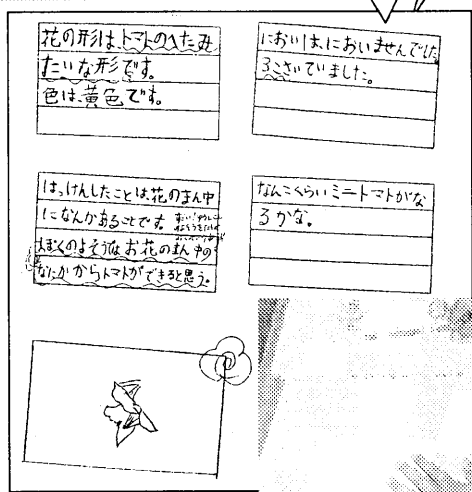 花の形は、トマトのへたみ
たいな形です。
色は、黄色です。
においは、においませんでした
3こさいていました。
はっけんしたことは、花のまん中
になんかあることです。
ぼくのよそうはお花のまん中の
なにかからトマトができると思う。
なんこくらいミニートマトがな
るかな。